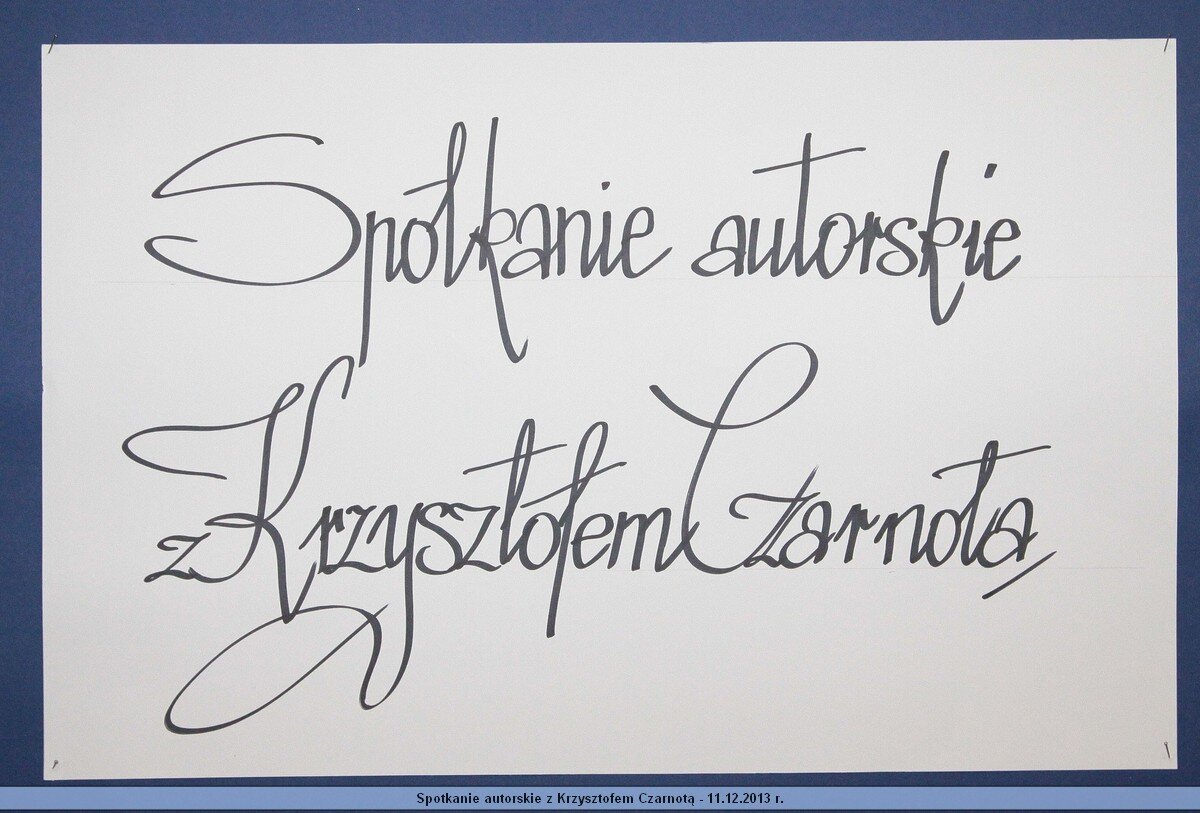 Spotkanie autorskie
z Krzysztofem Czarnotą
Spotkanie autorskie z Krzysztofem Czarnotą - 11.12.2013 r.